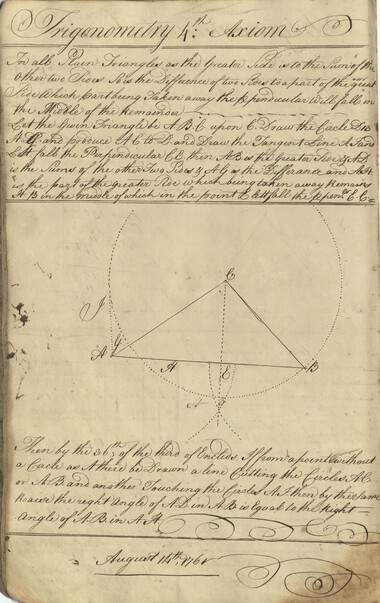 Trigonometry 4th Axiom
In all Plain Triangles as the Greater Side is to the Sum of the
Other two Sides So is the Difference of two Sides to a part of the great
Side Which Part being Taken away the Perpendicular Will fall in
the Middle of the Remainder
Let the Given Triangle be A B C upon C Draw the Circle
and produce A C to D and Draw the Tangent Line A J and
Let fall the Perpendicular C E then A B is the Greater Side & A D
is the Sum of the other Two Sides & A G is the Difference and A H
is the part of the greater Side which being taken away Remains
H B in the middle of which in the point E Let fall the E C
C
J
G
A
H
E
B
Then by the 36th of the third of Euclids If from a point without
a Circle as A there be Drawn a line Cutting the Circles A C
or A B and another Touching the Circles A J then by the same
the right Angle of A D in A G is Equal to the Right
Angle of A B in A H
August 14th 1761